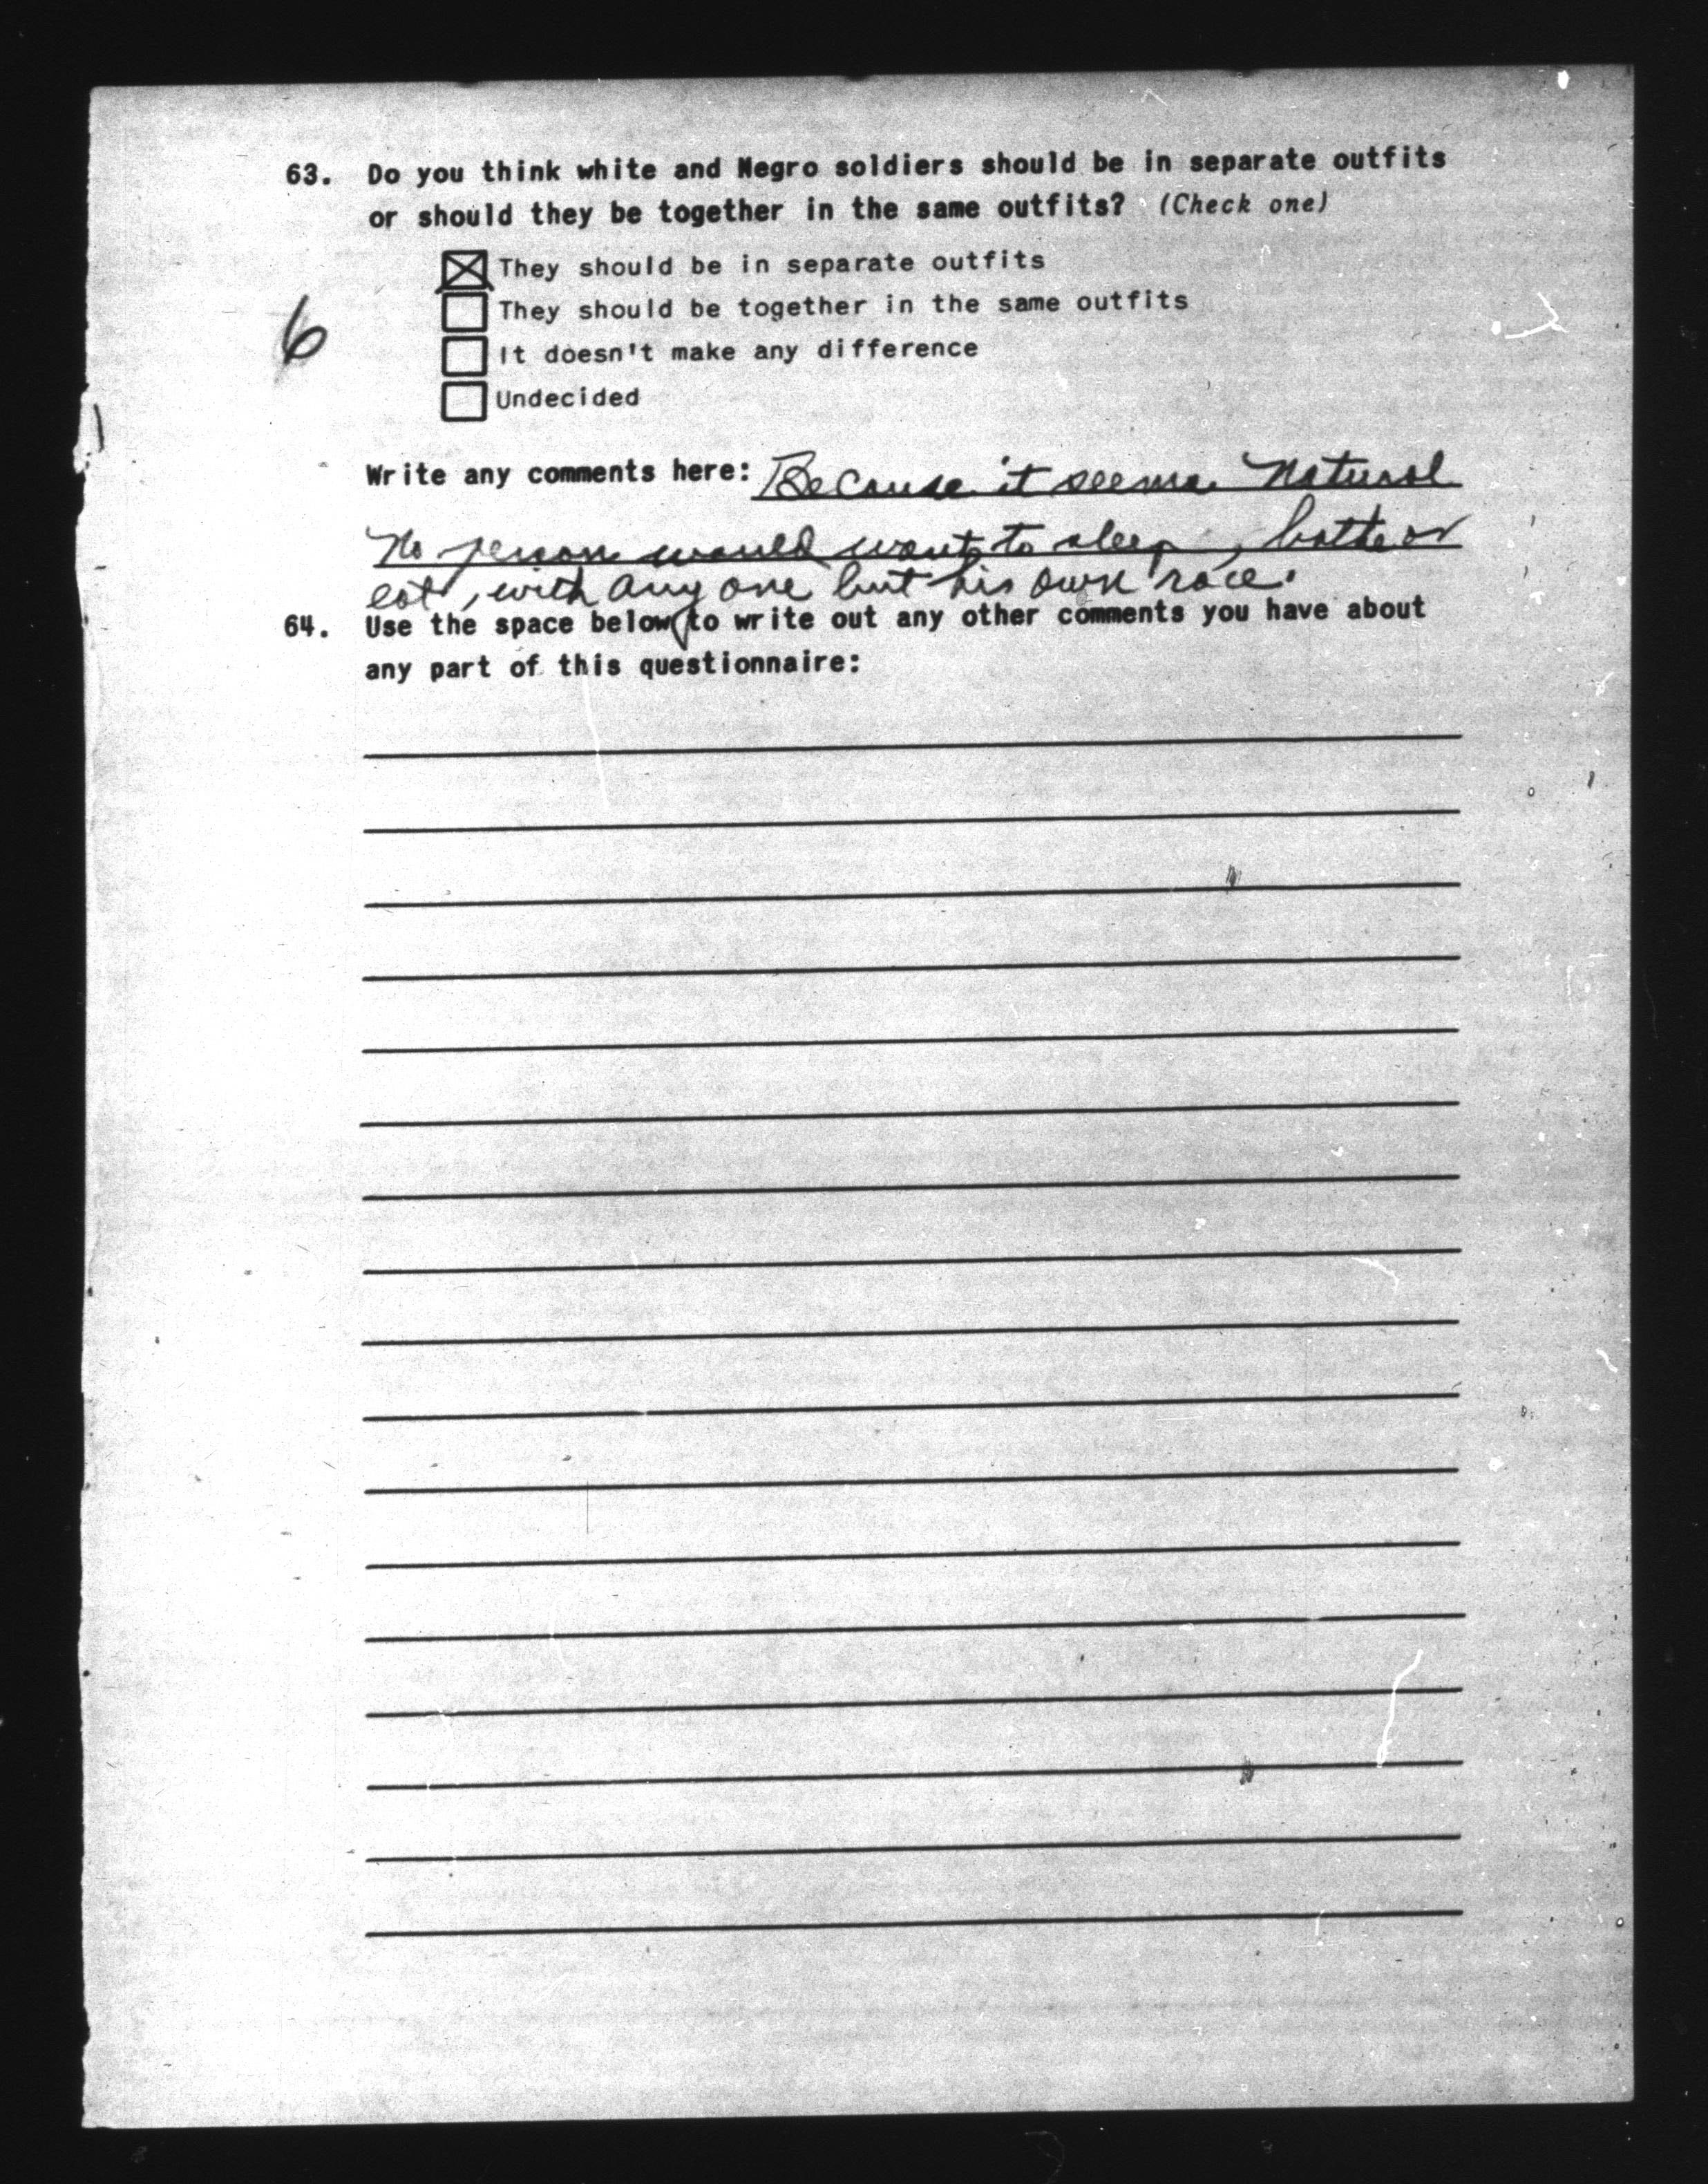 63. Do you think white and Negro soldiers should be in separate outfits
or should they be together in the same outfits? (Check one)
They should be in separate outfits
They should be together in the same outfits
6
It doesn't make any difference
Undecided
Write any comments here: Because it seems Natural
No person would want to sleep, bathe or
eat, with any one but his own race.
64. Use the space below to write out any other comments you have about
any part of this questionnaire: